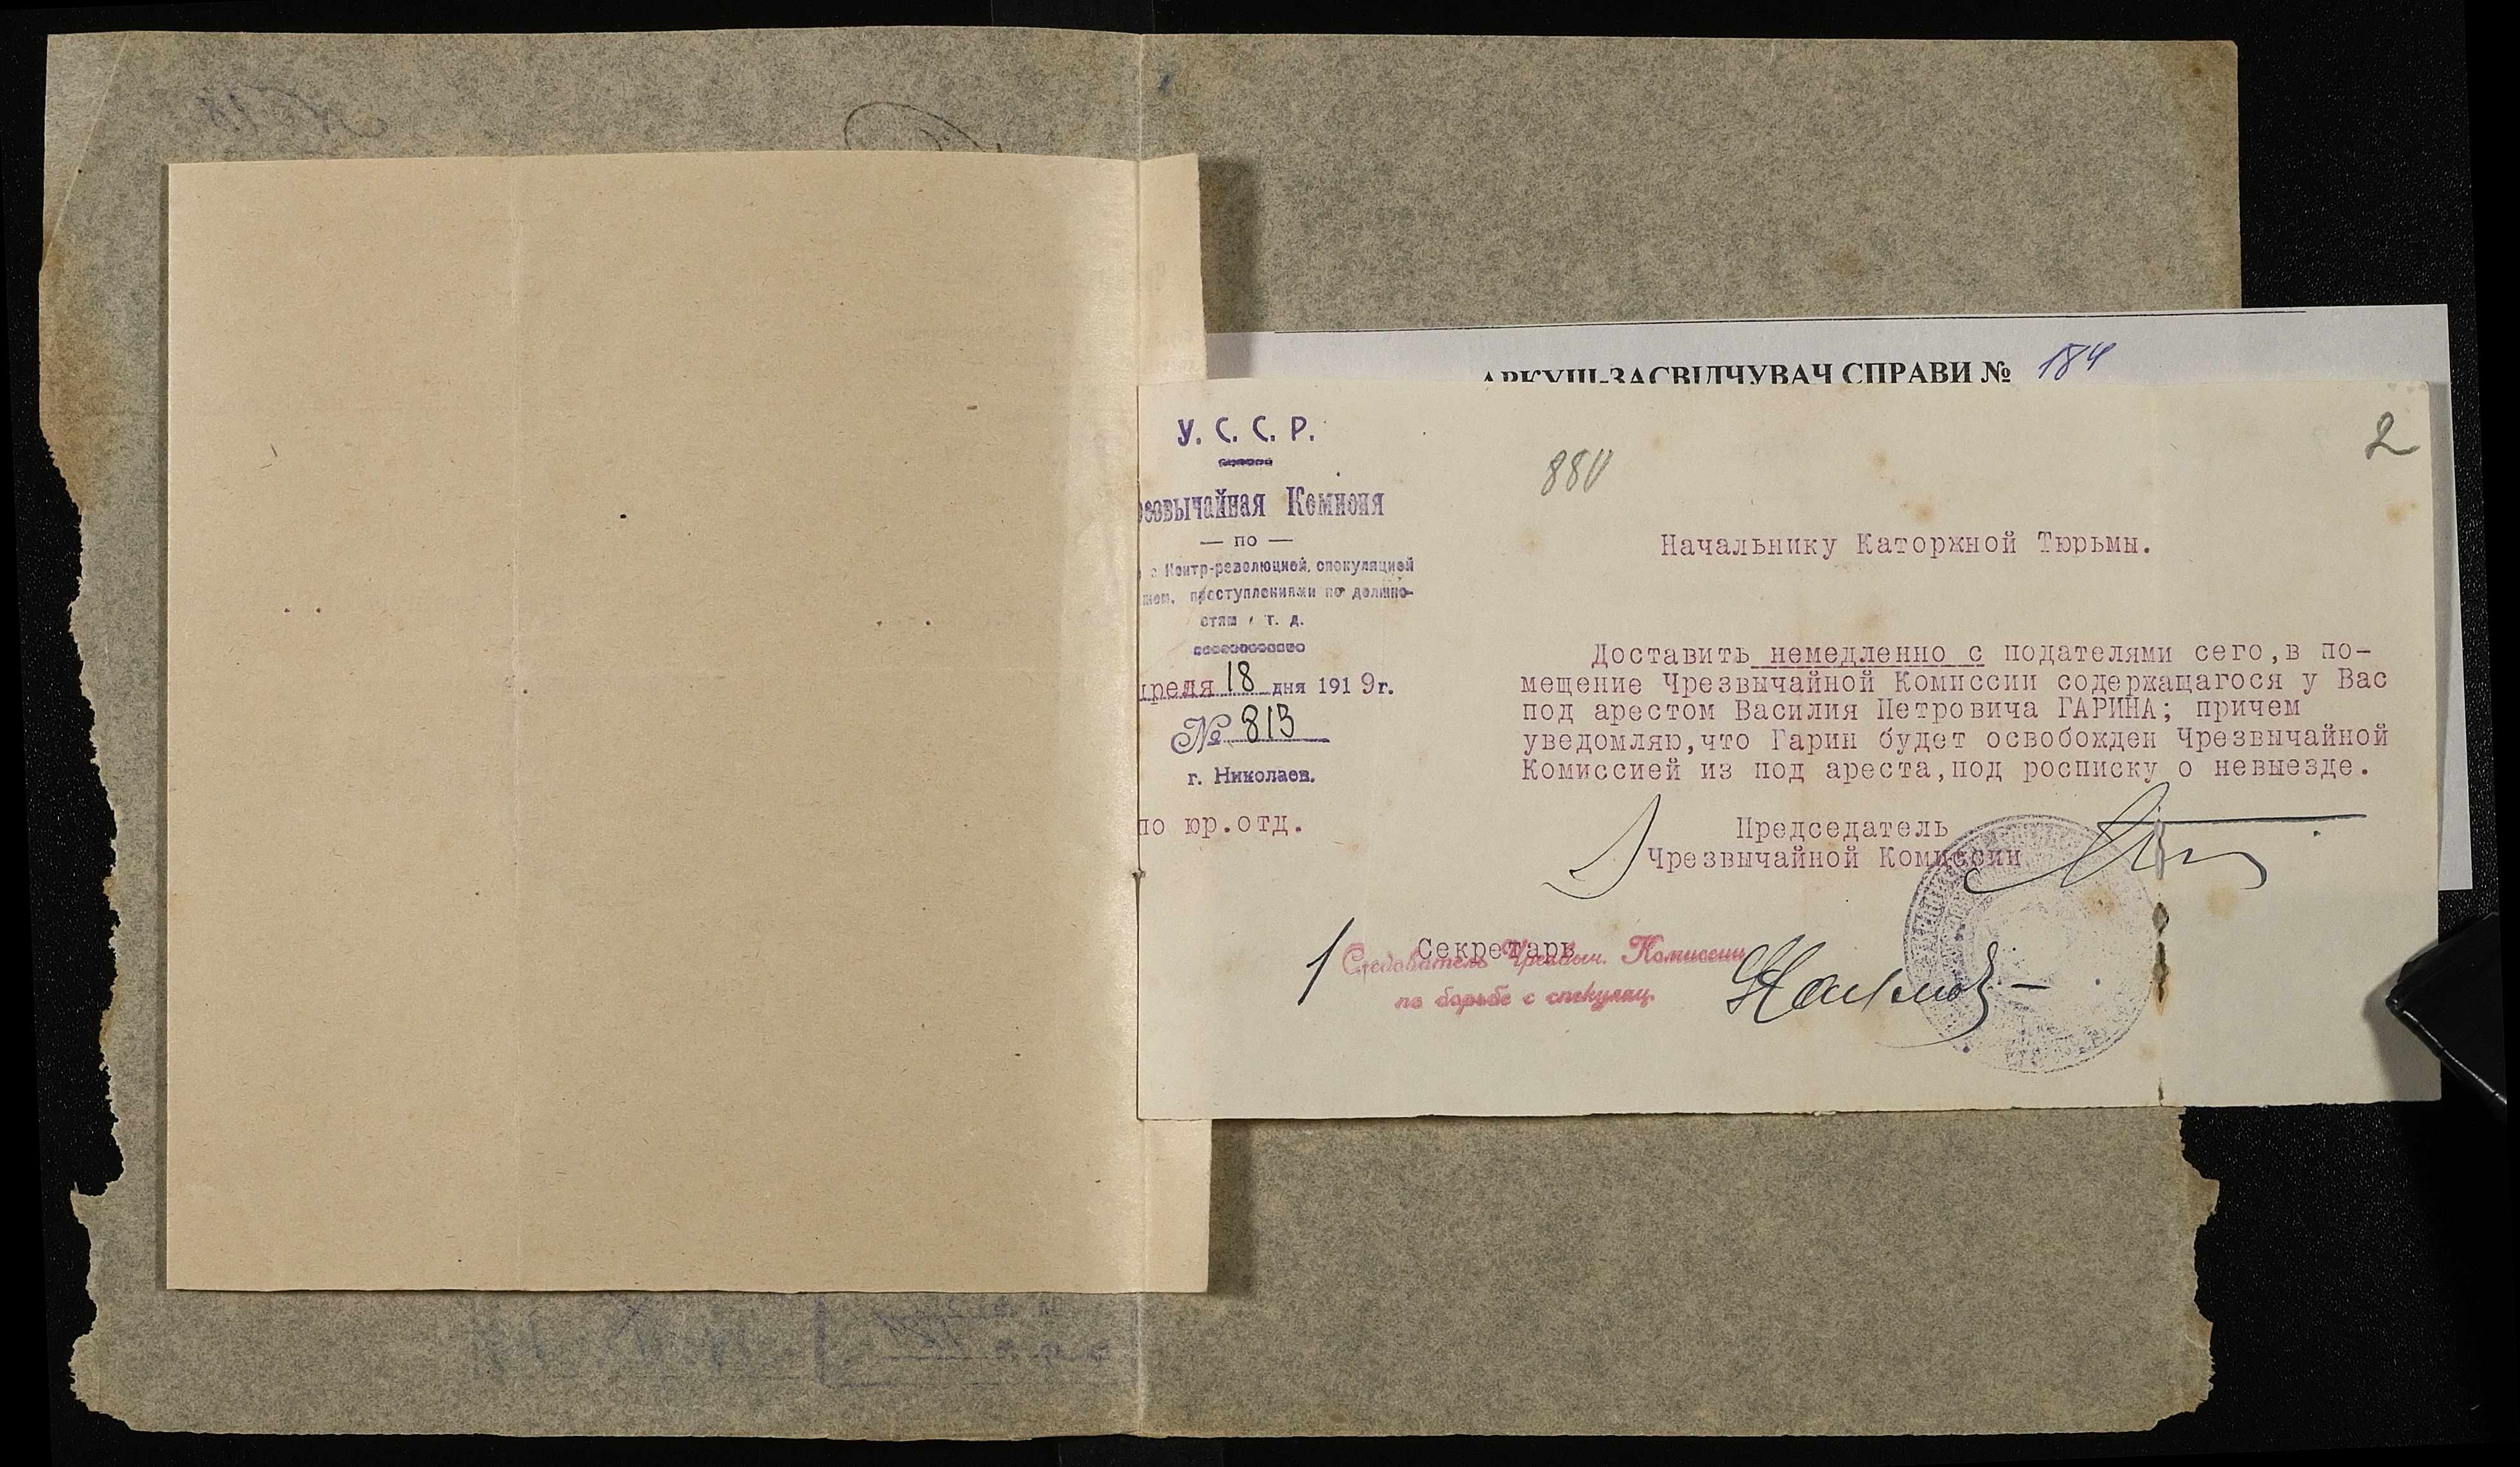 АРКУШ-ЗАСВІДЧУВАЧ СПРАВИ № 184
2
880
У. С. С. Р.
Комиссия
— по —
Контр-революцией, спекуляцией
преступлениями по должно-
стям и т. д.
18 дня 1919г.
№ 813
г. Николаев.
по юр.отд.
Начальнику Каторжной Тюрьмы.
Доставить немедленно с подателями сего,в по-
мещение Чрезвычайной Комиссии содержащагося у Вас
под арестом Василия Петровича ГАРИНА; причем
уведомляю,что Гарин будет освобожден Чрезвычайной
Комиссией из под ареста,под росписку о невыезде.
Председатель
Чрезвычайной Комиссии
Секретарь
Следователь Чрезвыч. Комиссии
по борьбе с спекуляц.